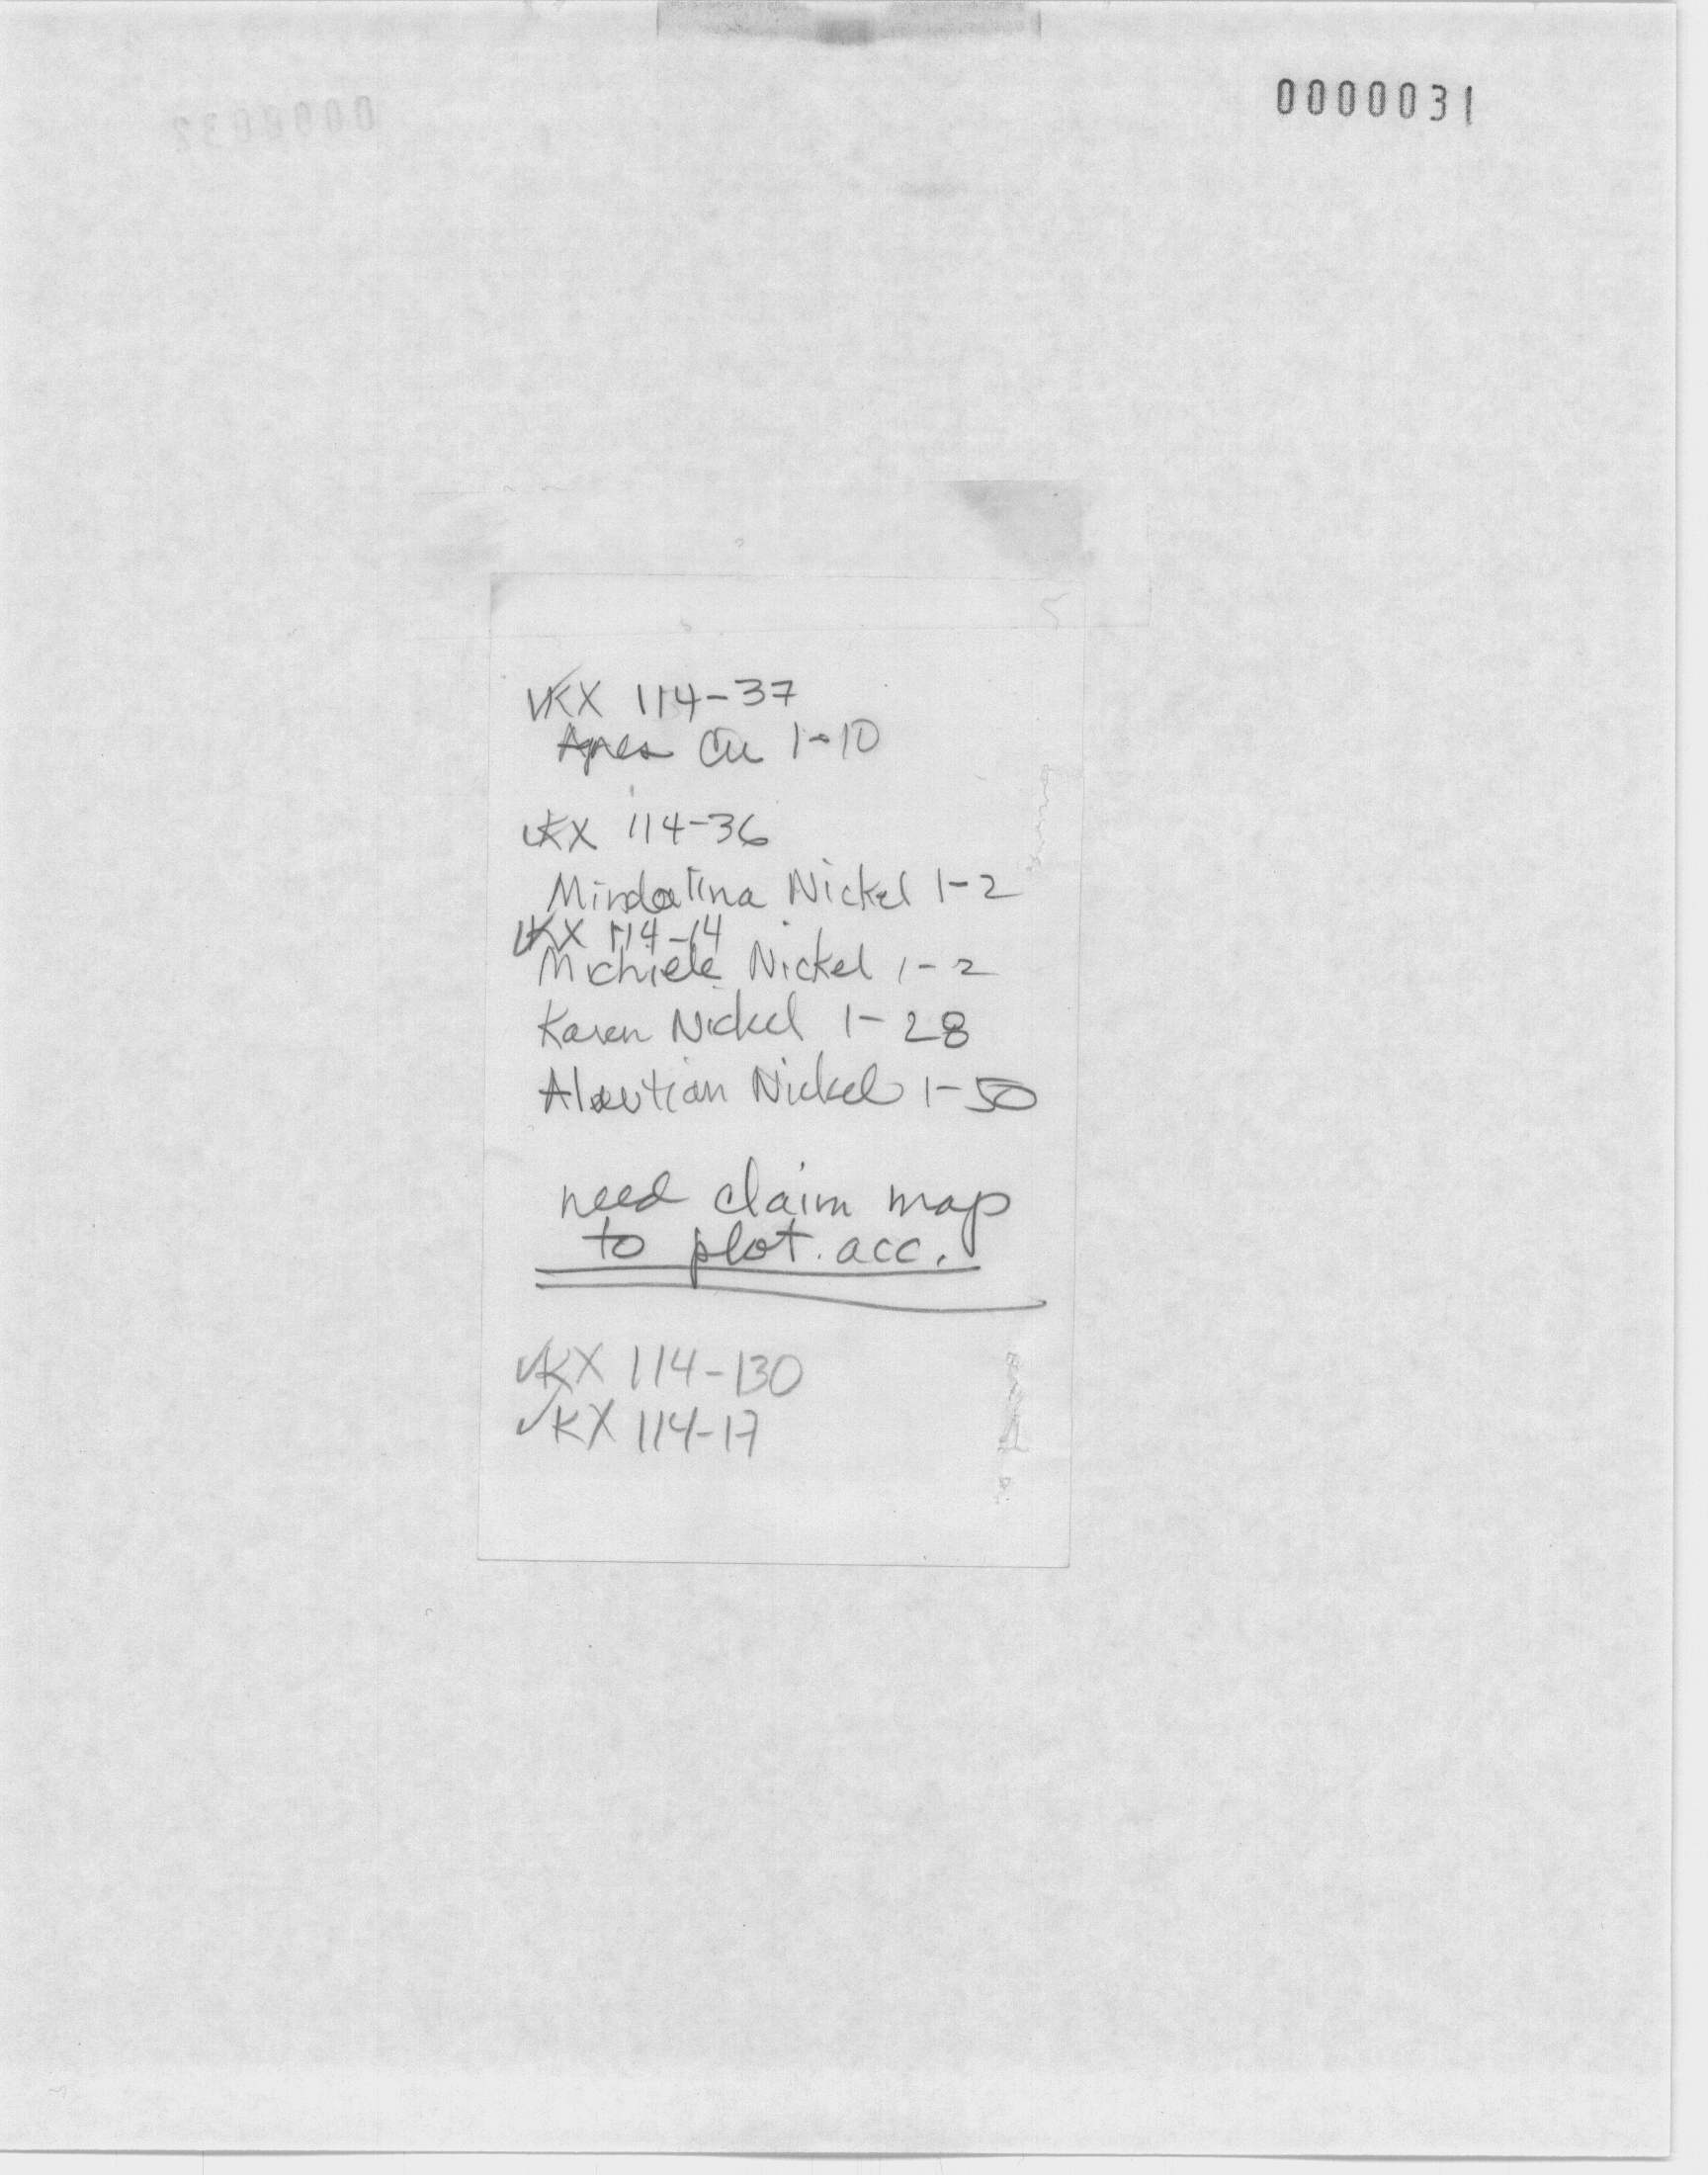 0000031
✓KX 114-37
Agnes Cu 1-10
✓KX 114-36
Mindalina Nickel 1-2
✓KX 114-14
Michiele Nickel 1-2
Karen Nickel 1-28
Aleutian Nickel 1-50
need claim map
to plot. acc.
✓KX 114-130
✓KX 114-17